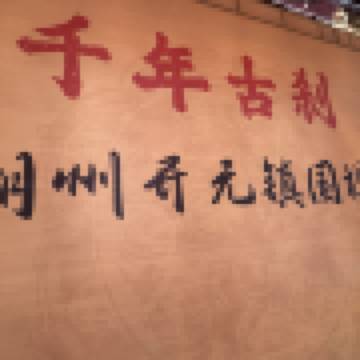 千年古刹
州开元镇国